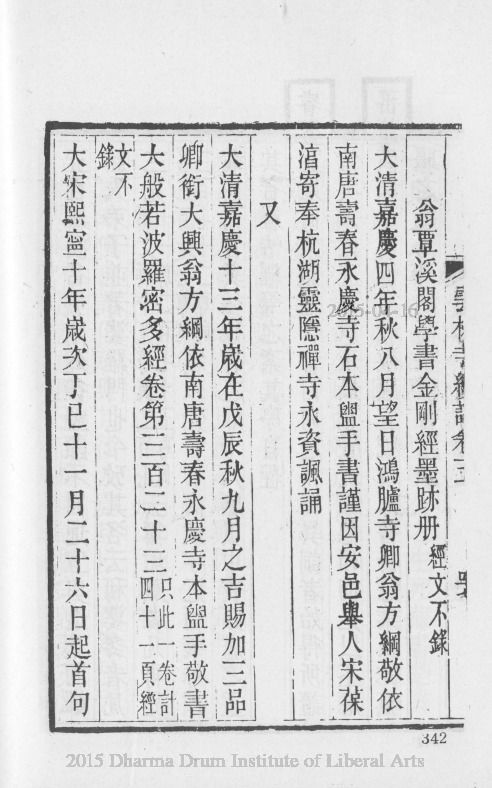 翁覃溪閣學書金剛經墨跡册 經文不錄
大清嘉慶四年秋八月望日鴻臚寺卿翁方綱敬依
南唐壽春永慶寺石本盥手書謹因安邑舉人宋葆
湻寄奉杭湖靈隱禪寺永資諷誦
又
大清嘉慶十三年歲在戊辰秋九月之吉賜加三品
卿銜大興翁方綱依南唐壽春永慶寺本盥手敬書
大般若波羅密多經卷第三百二十三 只此一卷計四十一頁經
文不錄
大宋熙寧十年歲次丁巳十一月二十六日起首句
342
2015 Dharma Drum Institute of Liberal Arts